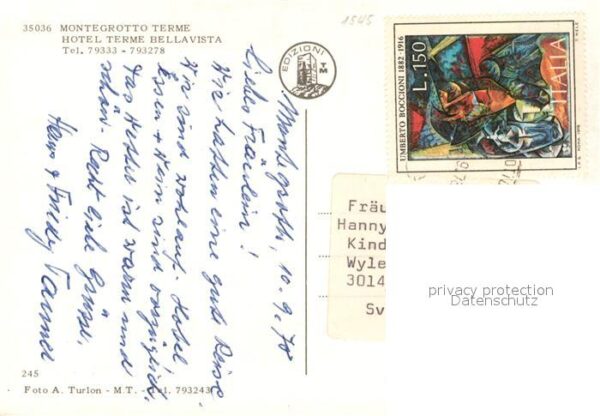 35036 MONTEGROTTO TERME
HOTEL TERME BELLAVISTA
Tel. 79333 - 793278
1545
EDIZIONI
TM
L.150
ITALIA
UMBERTO BOCCIONI 1882-1916
Montegrotto, 10.9.78
Liebes Fräulein!
Wir hatten eine gute Reise
Wir sind wohlauf. Hotel
Essen + Wein sind vorzüglich.
Das Wetter ist warm und
schön. Recht viele Grüsse.
Hans & Friedy
Fräu
Hanny
Kind
Wyle
3014
Sv
privacy protection
Datenschutz
245
Foto A. Turlon - M.T. - Tel. 793243